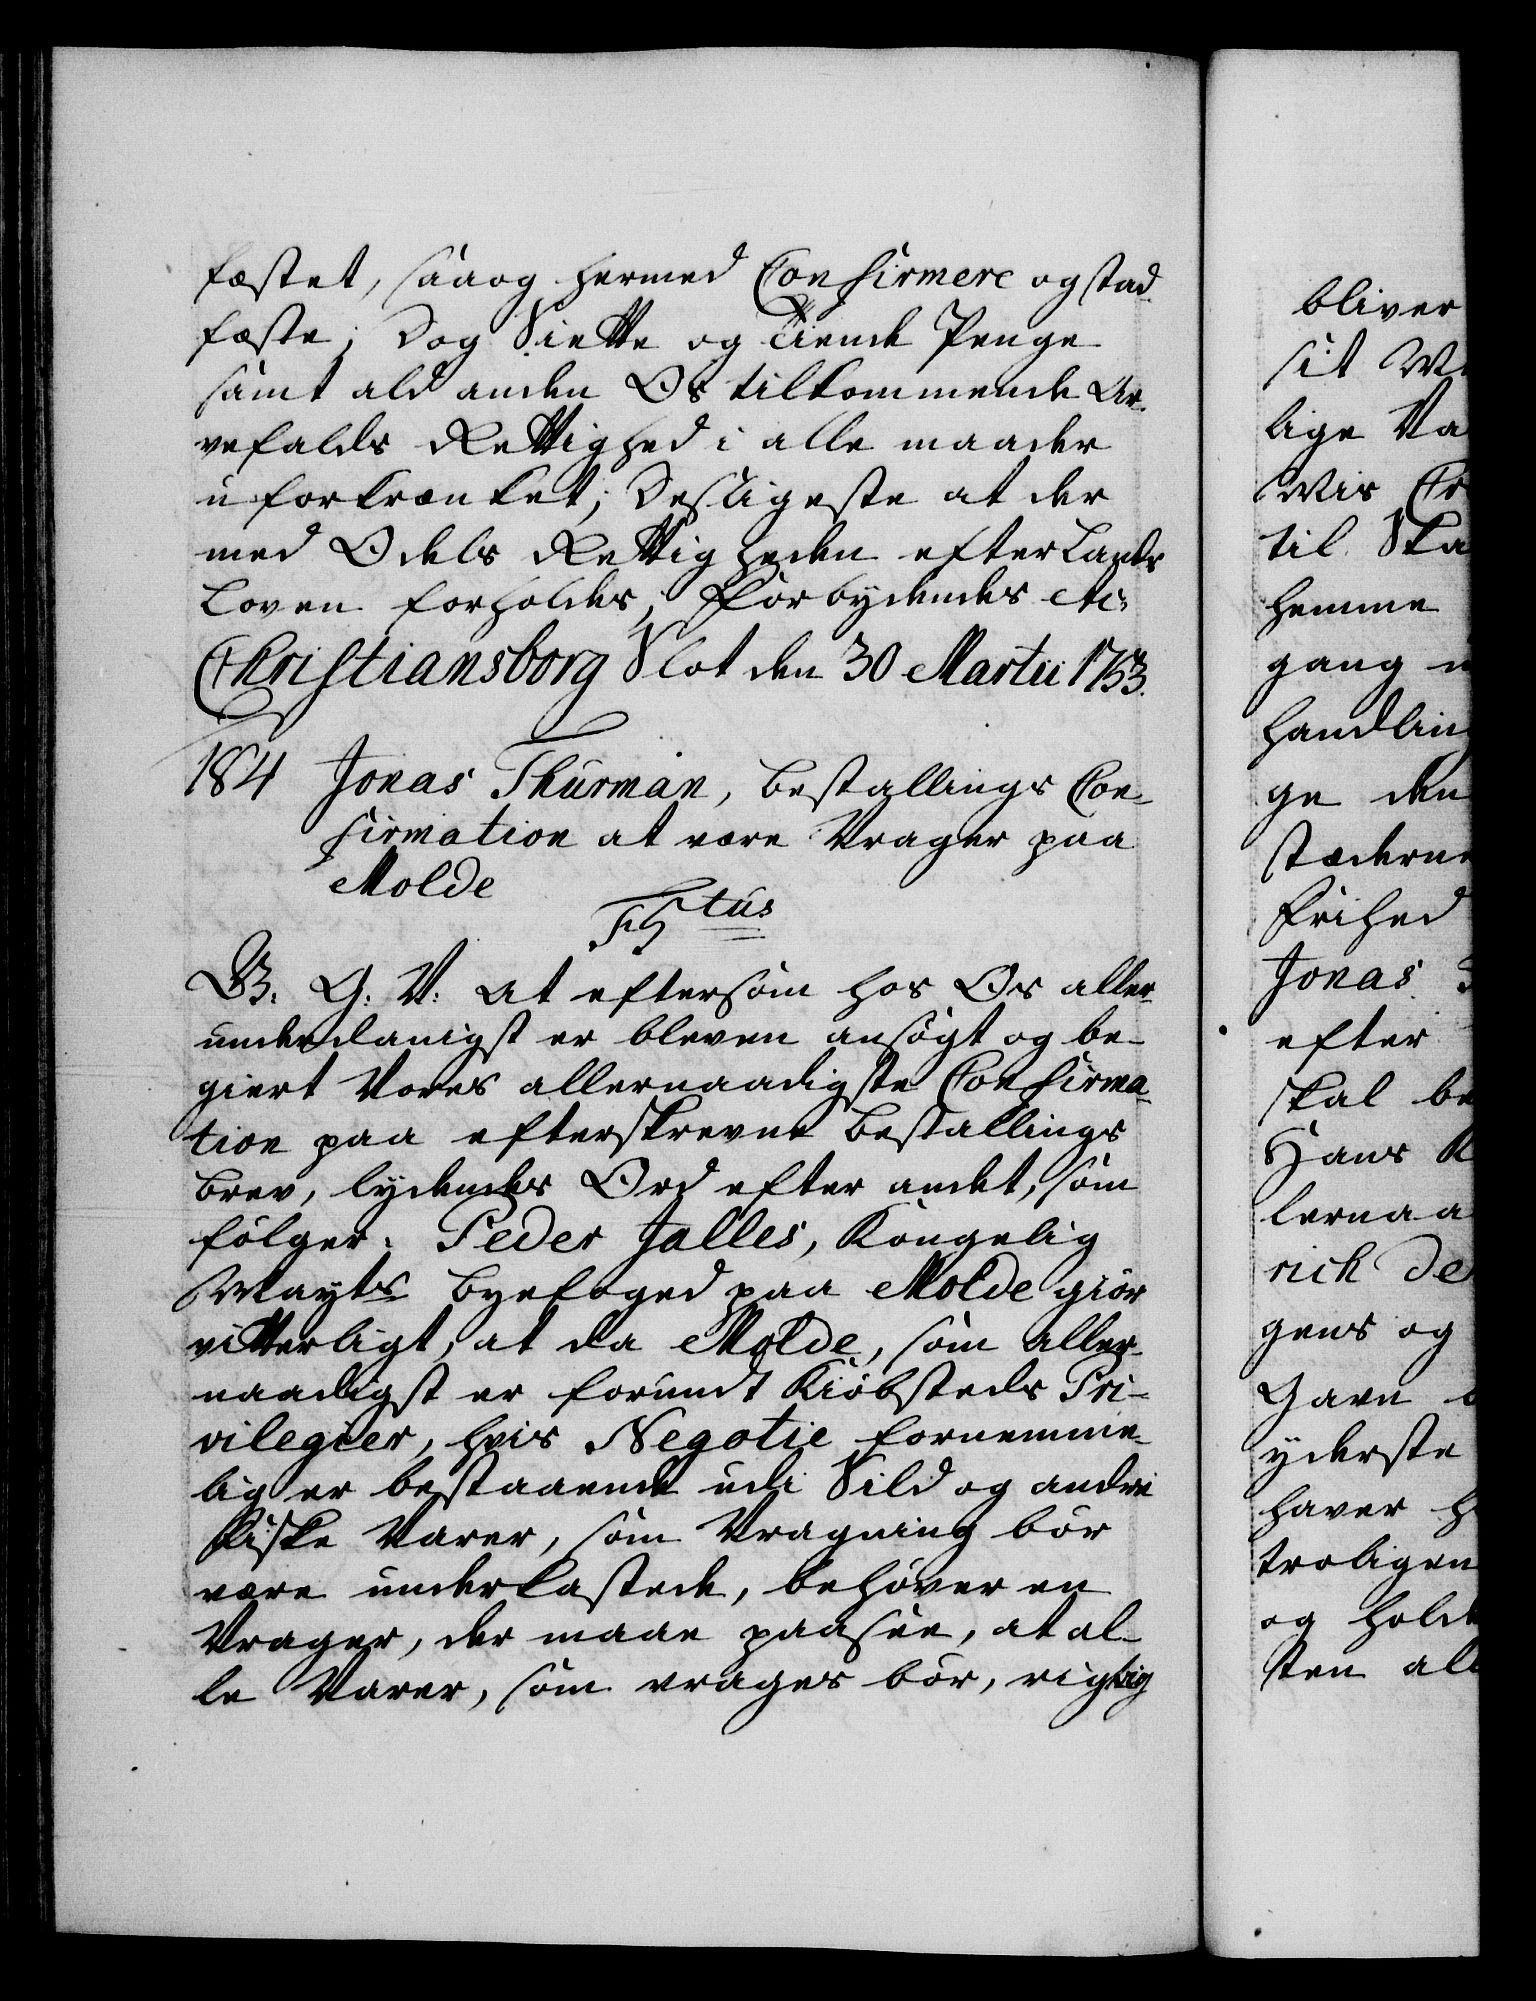 fæstet, saa og hermed Confirmere og stad-
fæste; Dog Siette og Tiende Penge
samt ald anden Os tilkommende Ar-
vefalds Rettighed i alle maader
uforkrænket; Desligeste at der
med Odels Rettigheden efter Lands
Loven forholdes; Forbydendes etc:
Christiansborg Slot den 30 Martii 1753.
184 Jonas Thurman, Bestallings Con-
firmation at være Vrager paa
Molde
F5tus
G. A. V: At eftersom hos Os aller-
underdanigst er bleven ansøgt og be-
giert Vores allernaadigste Confirma-
tion paa efterskrevne Bestallings
Brev, lydendes Ord efter andet, som
følger: Peder Jalles, Kongelig
Mayts Byefoged paa Molde giør
vitterligt, at da Molde, som aller-
naadigst er forundt Kiøbsteds Pri-
vilegier, hvis Negotie fornemme-
lig er bestaaende udi Sild og andre
Fiske Varer, som Vragning bør
være underkastede, behøver en
Vrager, der maae paasee, at al-
le Varer, som vrages bør, rigtig
bliver
sit
lige Va
Wis
til Ska
hemme
gang
handlin
ge den
stæderne
Frihed
Jonas
efter
skal be
Hans K
lernaa
rich De
gens og
Gavn
yderste
haver
troligen
og hold
sten all